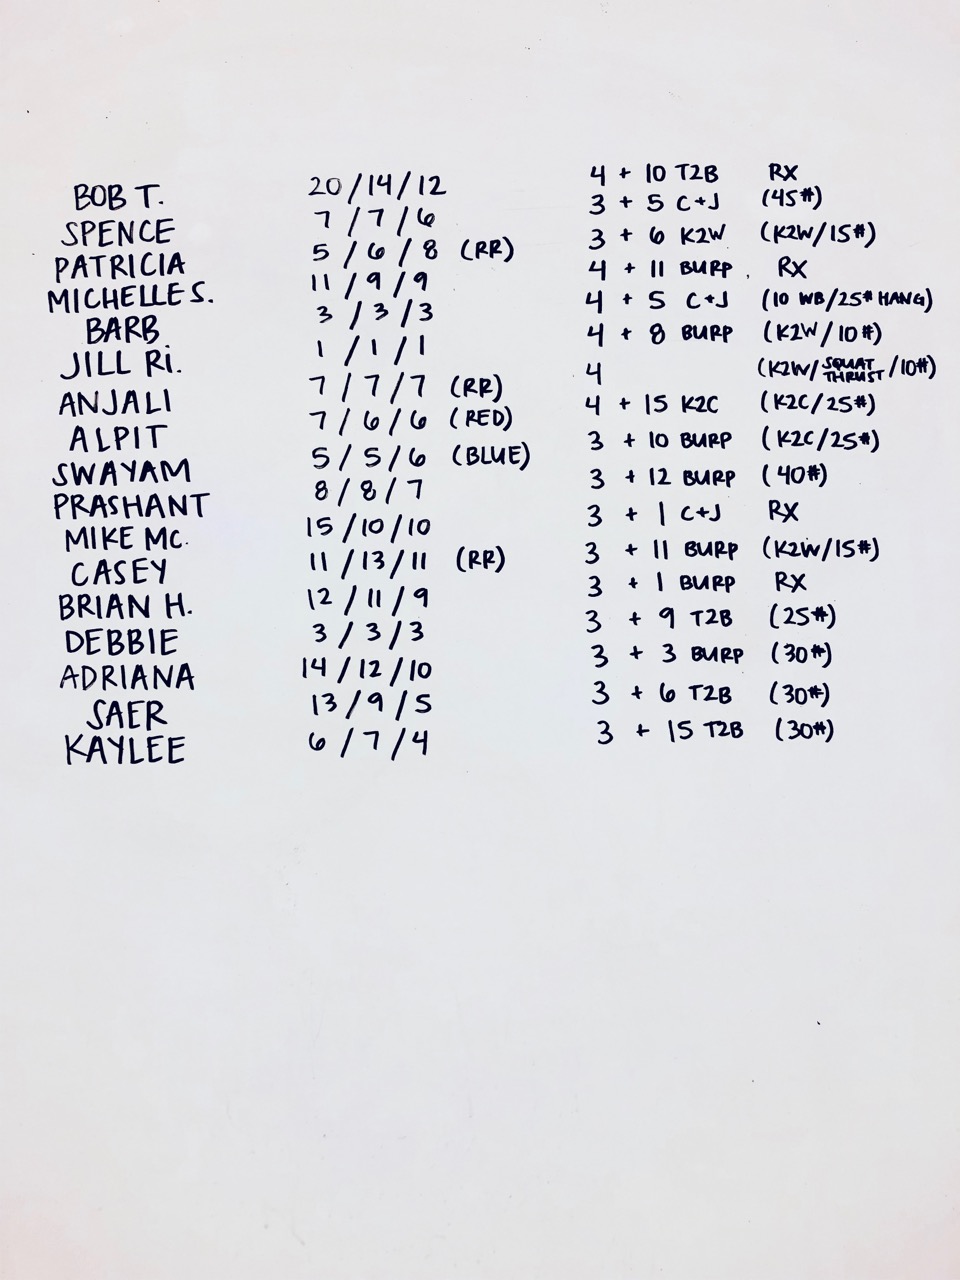 BOB T. 20/14/12 4 + 10 T2B RX
SPENCE 7/7/6 3 + 5 C+J (45#)
PATRICIA 5/6/8 (RR) 3 + 6 K2W (K2W/15#)
MICHELLE S. 11/9/9 4 + 11 BURP. RX
BARB 3/3/3 4 + 5 C+J (10 WB/25# HANG)
JILL Ri. 1/1/1 4 + 8 BURP (K2W/10#)
ANJALI 7/7/7 (RR) 4 (K2W/SQUAT THRUST/10#)
ALPIT 7/6/6 (RED) 4 + 15 K2C (K2C/25#)
SWAYAM 5/5/6 (BLUE) 3 + 10 BURP (K2C/25#)
PRASHANT 8/8/7 3 + 12 BURP (40#)
MIKE MC. 15/10/10 3 + 1 C+J RX
CASEY 11/13/11 (RR) 3 + 11 BURP (K2W/15#)
BRIAN H. 12/11/9 3 + 1 BURP RX
DEBBIE 3/3/3 3 + 9 T2B (25#)
ADRIANA 14/12/10 3 + 3 BURP (30#)
SAER 13/9/5 3 + 6 T2B (30#)
KAYLEE 6/7/4 3 + 15 T2B (30#)